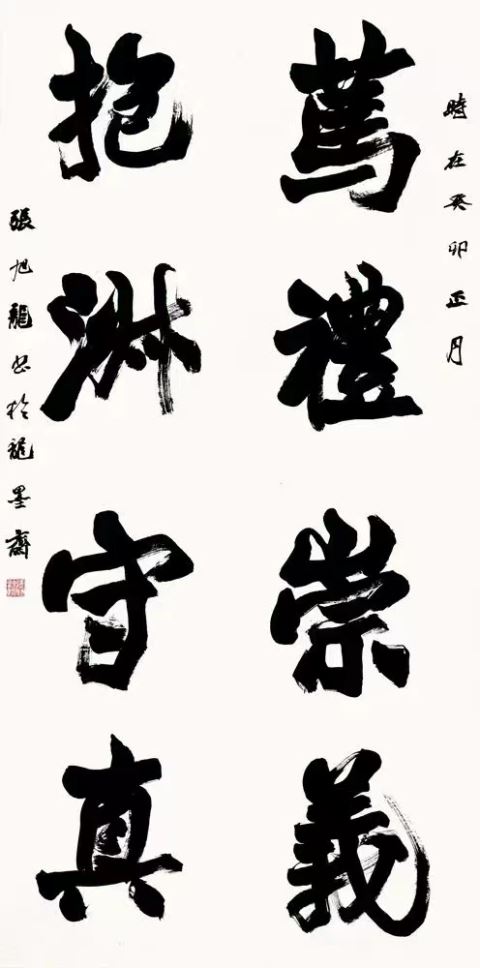 時在癸卯正月
篤禮崇義
抱淑守真
張旭龍书於龍墨齋